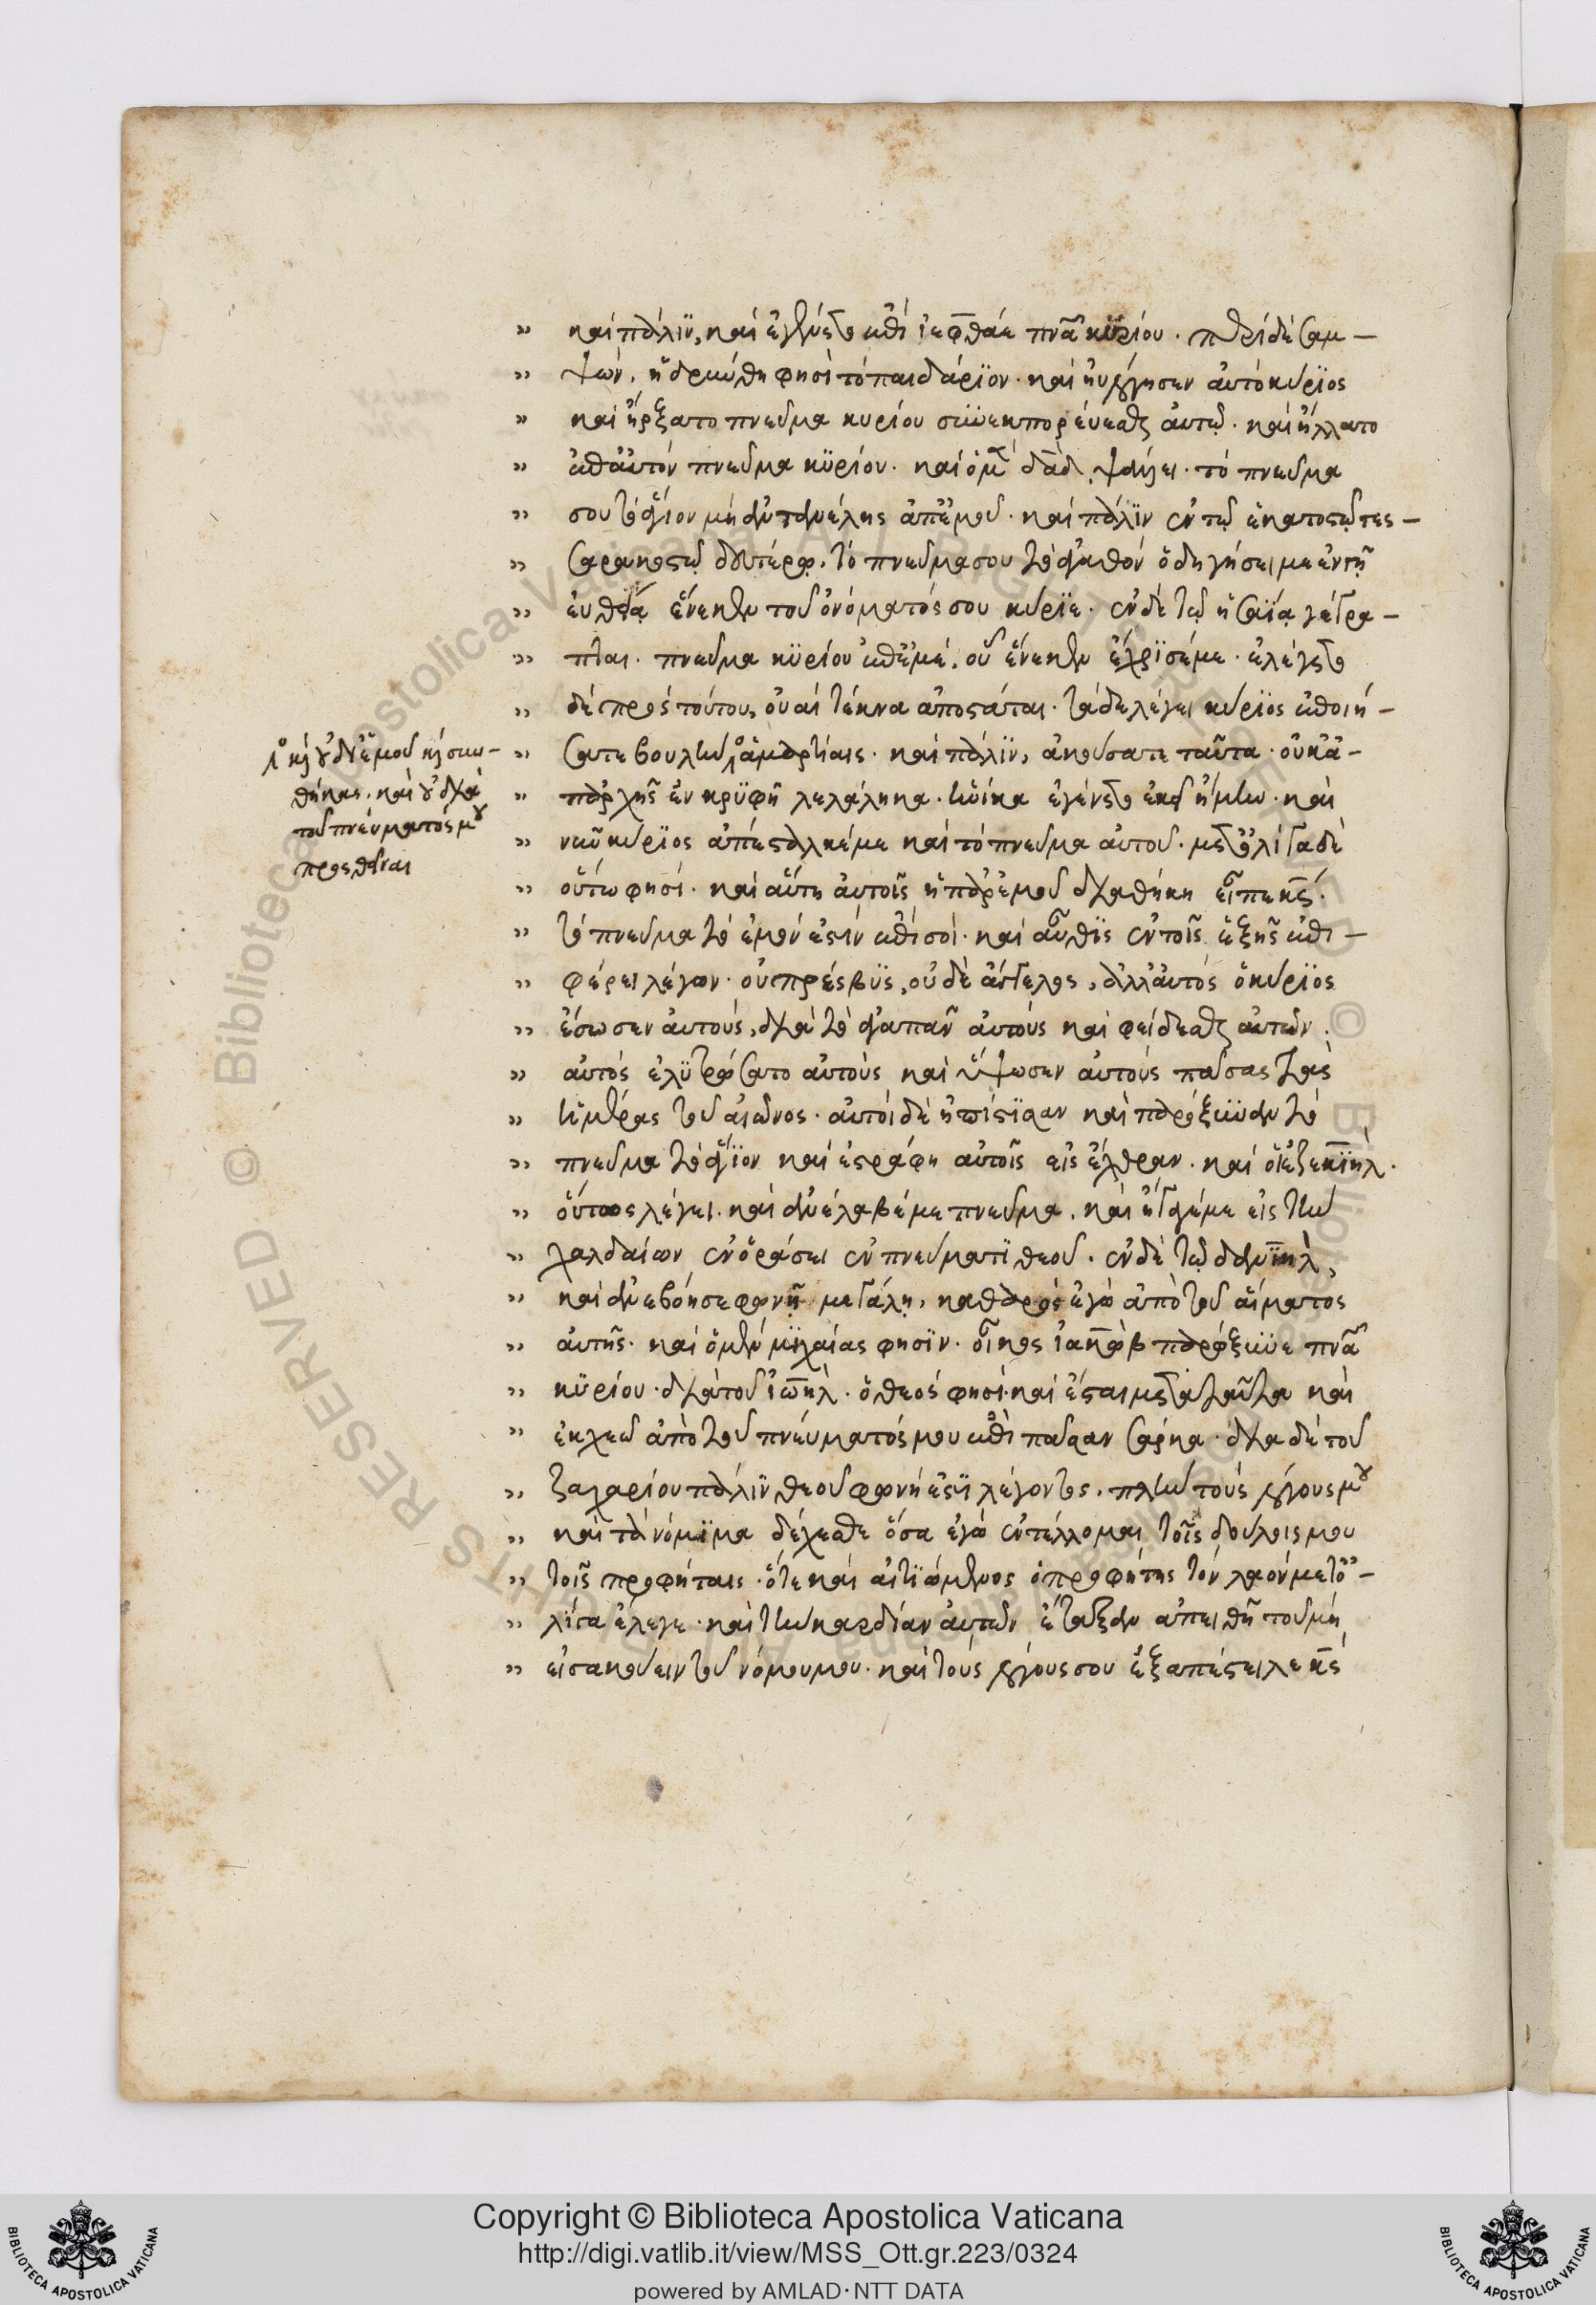 » καὶ πάλιν, καὶ ἐγένετο ἐπὶ ἰεφθάε πνα κυρίου. περὶ δὲ σαμ-
» ψών. ἡδρύνθη φησὶ τὸ παιδάριον. καὶ ηὐλόγησεν αὐτὸ κύριος
» καὶ ἤρξατο πνεῦμα κυρίου συνεκπορεύεσθαι αὐτῷ. καὶ ἥλλατο
» ἐπ' αὐτὸν πνεῦμα κυρίου. καὶ ὁ μα δαδ, ψάλλει. τὸ πνεῦμα
» σου τὸ ἅγιον μὴ ἀντανέλης ἀπ' ἐμοῦ. καὶ πάλιν ἐν τῷ ἑκατοστῷ τες-
» σαρακοστῷ δευτέρῳ. τὸ πνεῦμα σου τὸ ἀγαθὸν ὁδηγήσει με ἐν τῇ
» εὐθείᾳ ἕνεκεν τοῦ ὀνόματός σου κύριε. ἐν δὲ τῷ ἡσαΐᾳ γέγρα-
» πται. πνεῦμα κυρίου ἐπ' ἐμέ. οὗ ἕνεκεν ἔχρισέ με. ἐλέγετο
» δὲ πρὸς τούτου, οὐαὶ τέκνα ἀποστάται. τάδε λέγει κύριος ἐποιή-
» σατε βουλὴν ἁμαρτίαις. καὶ πάλιν, ἀκούσατε ταῦτα. οὐκ ἀ-
οὐ δι' ἐμοῦ κὶ συν-
θήκας. καὶ οὐ διὰ
τοῦ πνεύματός μου
προσθεῖναι
» παρχῆς ἐν κρυφῇ λελάληκα. ἡνίκα ἐγένετο ἐκεῖ ἤμην. καὶ
» νῦν κύριος ἀπέσταλκέ με καὶ τὸ πνεῦμα αὐτοῦ. μετ' ὀλίγα δὲ
» οὕτω φησί. καὶ αὕτη αὐτοῖς ἡ παρ' ἐμοῦ διαθήκη εἶπε κς.
» τὸ πνεῦμα τὸ ἐμόν ἐστιν ἐπὶ σοί. καὶ αὖθις ἐν τοῖς ἑξῆς ἐπι-
» φέρει λέγων. οὐ πρέσβυς, οὐδὲ ἄγγελος, ἀλλ' αὐτὸς ὁ κύριος
» ἔσωσεν αὐτούς, διὰ τὸ ἀγαπᾶν αὐτοὺς καὶ φείδεσθαι αὐτῶν.
» αὐτὸς ἐλυτρώσατο αὐτοὺς καὶ ὕψωσεν αὐτοὺς πάσας τὰς
» ἡμέρας τοῦ αἰῶνος. αὐτοὶ δὲ ἠπίστησαν καὶ παρώξυναν τὸ
» πνεῦμα τὸ ἅγιον καὶ ἐστράφη αὐτοῖς εἰς ἔχθραν. καὶ ὁ ἰεζεκιὴλ.
» οὕτως λέγει. καὶ ἀνέλαβέ με πνεῦμα. καὶ ἤγαγέ με εἰς τὴν
» χαλδαίων ἐν ὁράσει ἐν πνεύματι θεοῦ. ἐν δὲ τῷ δανιὴλ,
» καὶ ἀνεβόησε φωνῇ μεγάλῃ, καθαρὸς ἐγὼ ἀπὸ τοῦ αἵματος
» αὐτῆς. καὶ ὁ μὲν μιχαίας φησίν. οἶκος ἰακὼβ παρώξυνε πνα
» κυρίου. διὰ τοῦ ἰωηλ. ὁ θεός φησι. καὶ ἔσται μετὰ ταῦτα καὶ
» ἐκχεῶ ἀπὸ τοῦ πνεύματός μου ἐπὶ πᾶσαν σάρκα. διὰ δὲ τοῦ
» ζαχαρίου πάλιν θεοῦ φωνή ἐστι λέγοντος. πλὴν τοὺς λόγους μου
» καὶ τὰ νόμιμα δέχεσθε ὅσα ἐγὼ ἐντέλλομαι τοῖς δούλοις μου
» τοῖς προφήταις. ὅτε καὶ αἰτιώμενος ὁ προφήτης τὸν λαὸν μετ' ὀ-
» λίγα ἔλεγε. καὶ τὴν καρδίαν αὐτῶν ἔταξαν ἀπειθῆ τοῦ μὴ
» εἰσακούειν τοῦ νόμου μου. καὶ τοὺς λόγους σου ἐξαπέστειλε κς
Copyright © Biblioteca Apostolica Vaticana
http://digi.vatlib.it/view/MSS_Ott.gr.223/0324
powered by AMLAD·NTT DATA
BIBLIOTECA APOSTOLICA VATICANA
BIBLIOTECA APOSTOLICA VATICANA